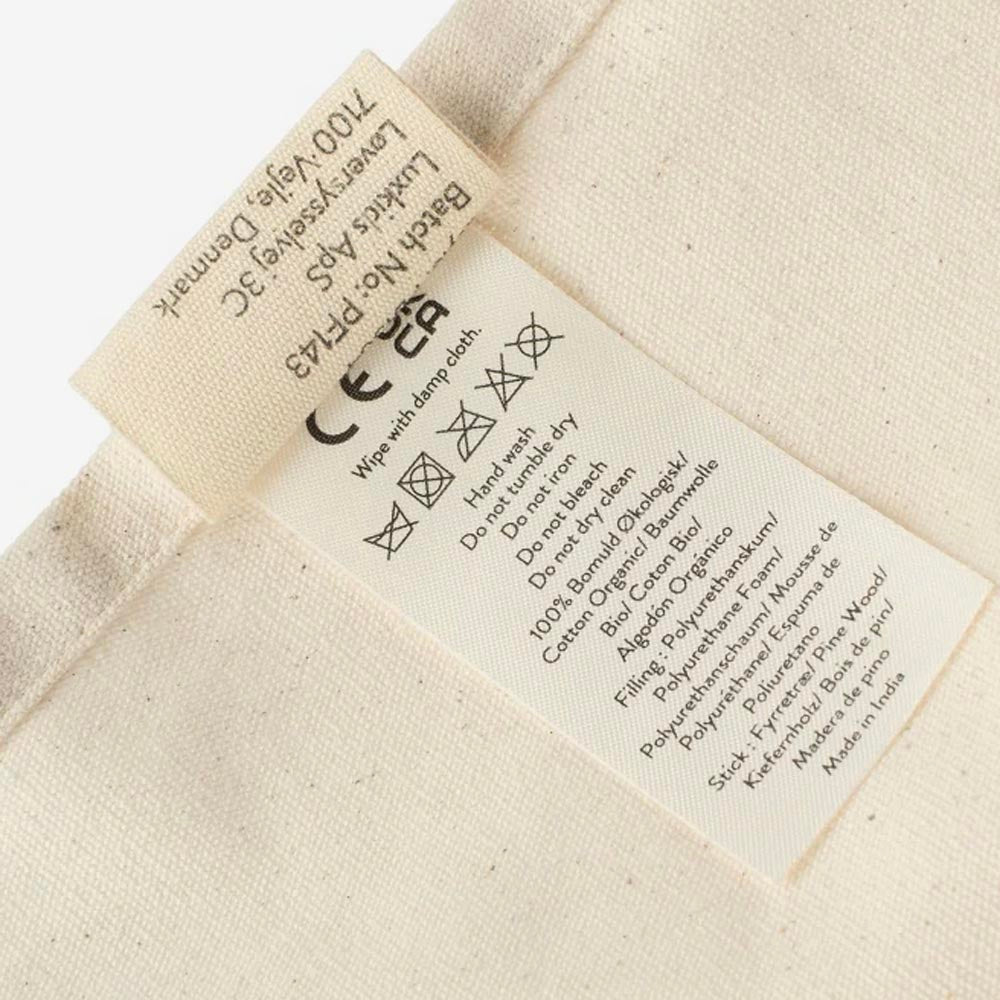 Batch No: PF143
Luxkids ApS
Løversysselvej 3C
7100 Vejle, Denmark
UK
CA
CE
Wipe with damp cloth.
Hand wash
Do not tumble dry
Do not iron
Do not bleach
Do not dry clean
100% Bomuld Økologisk/
Cotton Organic/ Baumwolle
Bio/ Coton Bio/
Algodón Orgánico
Filling : Polyurethanskum/
Polyurethane Foam/
Polyurethanschaum/ Mousse de
Polyuréthane/ Espuma de
Poliuretano
Stick : Fyrretræ/ Pine Wood/
Kiefernholz/ Bois de pin/
Madera de pino
Made in India